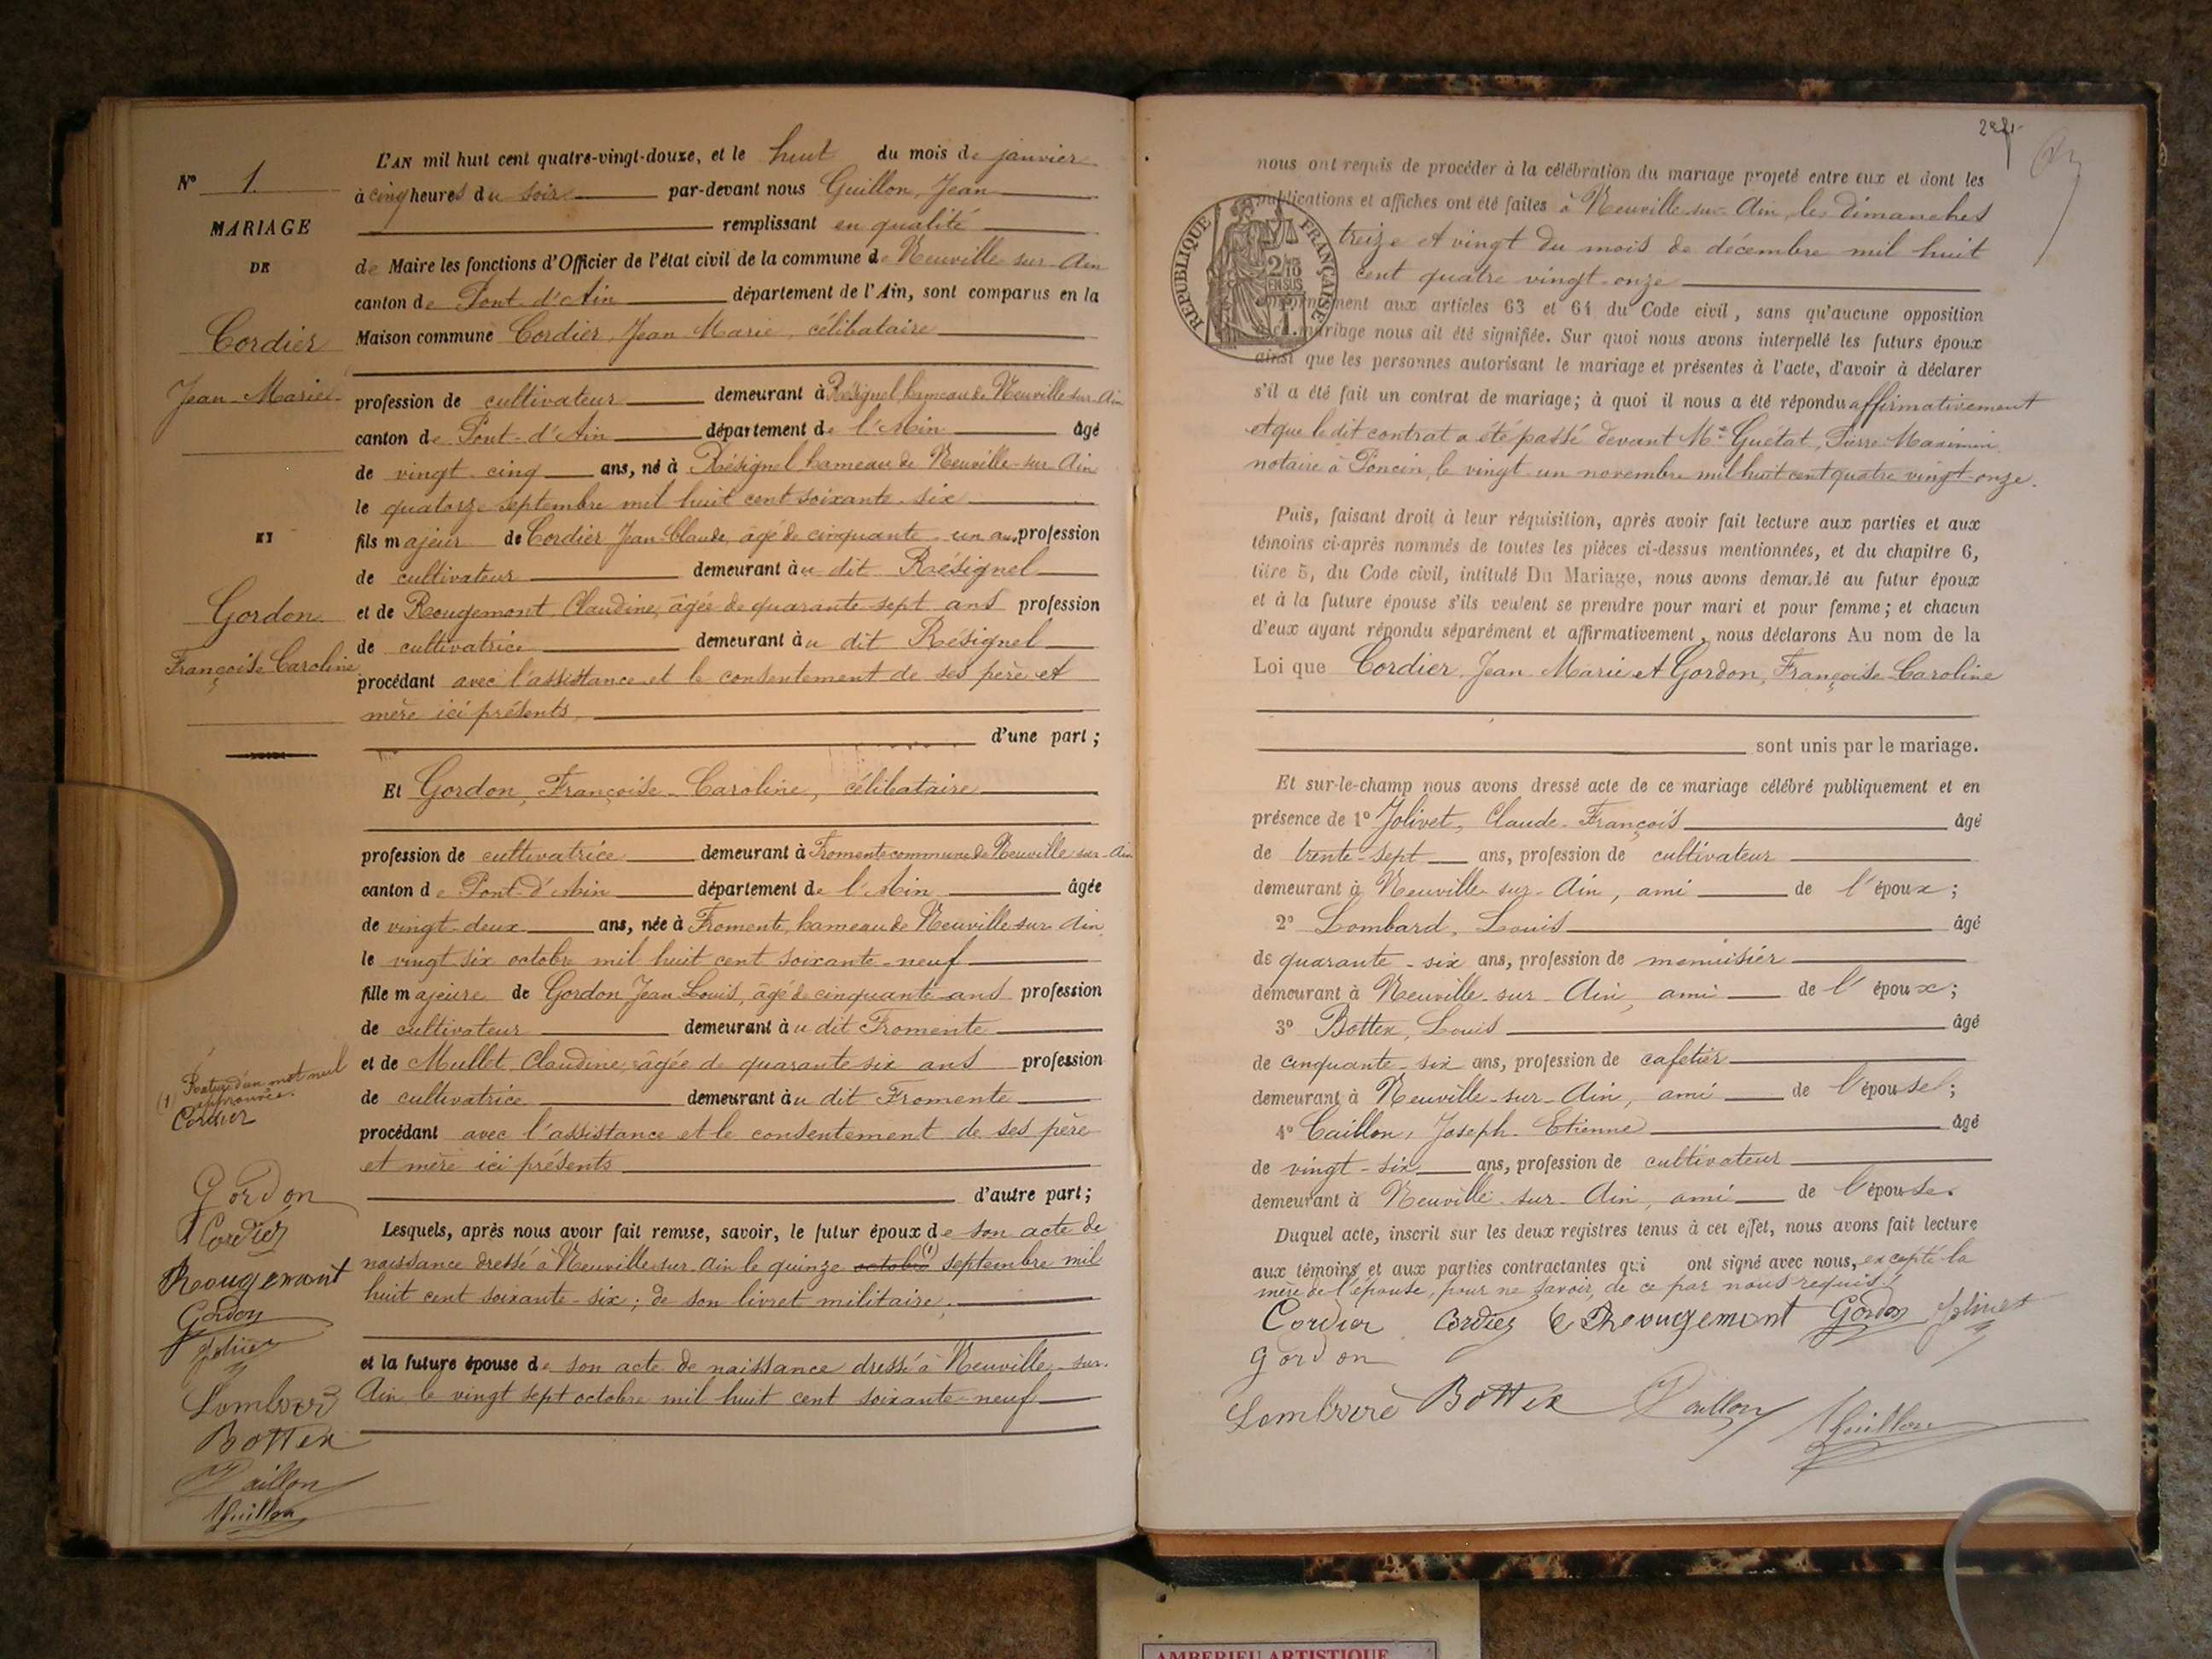 N° 1.
MARIAGE
DE
Cordier
Jean-Marie
ET
Gordon
Françoise Caroline
L'AN mil huit cent quatre-vingt-douze, et le huit du mois de janvier
à cinq heures du soir par-devant nous Guillon, Jean
remplissant en qualité
de Maire les fonctions d'Officier de l'état civil de la commune de Neuville sur Ain
canton de Pont d'Ain département de l'Ain, sont comparus en la
Maison commune Cordier, Jean Marie, célibataire
profession de cultivateur demeurant à Résignel, hameau de Neuville-sur-Ain
canton de Pont-d'Ain département de l'Ain âgé
de vingt-cinq ans, né à Résignel hameau de Neuville-sur-Ain
le quatorze septembre mil huit cent soixante-six
fils majeur de Cordier Jean Claude, âgé de cinquante-un ans, profession
de cultivateur demeurant au dit Résignel
et de Rougemont Claudine, âgée de quarante sept ans profession
de cultivatrice demeurant au dit Résignel
procédant avec l'assistance et le consentement de ses père et
mère ici présents,
d'une part ;
Et Gordon, Françoise-Caroline, célibataire
profession de cultivatrice demeurant à Fromente commune de Neuville-sur-Ain
canton de Pont-d'Ain département de l'Ain âgée
de vingt-deux ans, née à Fromente, hameau de Neuville sur Ain
le vingt six octobre mil huit cent soixante-neuf
fille majeure de Gordon Jean Louis, âgé de cinquante ans profession
de cultivateur demeurant au dit Fromente
et de Mullet Claudine, âgée de quarante six ans profession
de cultivatrice demeurant au dit Fromente
procédant avec l'assistance et le consentement de ses père
et mère ici présents
d'autre part ;
Lesquels, après nous avoir fait remise, savoir, le futur époux de son acte de
naissance dressé à Neuville sur Ain le quinze octobre (1) septembre mil
huit cent soixante-six ; de son livret militaire.
et la future épouse de son acte de naissance dressé à Neuville-sur-
Ain le vingt sept octobre mil huit cent soixante-neuf
(1) Rature d'un mot nul
approuvée.
Cordier
Gordon
Cordier
Rougemont
Gordon
Jolivet
Lombard
Bottex
Caillon
Guillon
nous ont requis de procéder à la célébration du mariage projeté entre eux et dont les
publications et affiches ont été faites à Neuville-sur-Ain, les dimanches
treize et vingt du mois de décembre mil huit
cent quatre vingt-onze
conformément aux articles 63 et 64 du Code civil, sans qu'aucune opposition
mariage nous ait été signifiée. Sur quoi nous avons interpellé les futurs époux
ainsi que les personnes autorisant le mariage et présentes à l'acte, d'avoir à déclarer
s'il a été fait un contrat de mariage ; à quoi il nous a été répondu affirmativement
et que le dit contrat a été passé devant Me Guétat, Pierre Maximin
notaire à Poncin, le vingt un novembre mil huit cent quatre vingt-onze.
RÉPUBLIQUE FRANÇAISE
2/10
EN SUS
Puis, faisant droit à leur réquisition, après avoir fait lecture aux parties et aux
témoins ci-après nommés de toutes les pièces ci-dessus mentionnées, et du chapitre 6,
titre 5, du Code civil, intitulé Du Mariage, nous avons demandé au futur époux
et à la future épouse s'ils veulent se prendre pour mari et pour femme ; et chacun
d'eux ayant répondu séparément et affirmativement, nous déclarons Au nom de la
Loi que Cordier, Jean Marie et Gordon, Françoise-Caroline
sont unis par le mariage.
Et sur-le-champ nous avons dressé acte de ce mariage célébré publiquement et en
présence de 1° Jolivet, Claude-François âgé
de trente-sept ans, profession de cultivateur
demeurant à Neuville-sur-Ain, ami de l'époux ;
2° Lombard, Louis âgé
de quarante-six ans, profession de menuisier
demeurant à Neuville-sur-Ain, ami de l'époux ;
3° Bottex, Louis âgé
de cinquante-six ans, profession de cafetier
demeurant à Neuville-sur-Ain, ami de l'épouse ;
4° Caillon, Joseph-Etienne âgé
de vingt-six ans, profession de cultivateur
demeurant à Neuville-sur-Ain, ami de l'épouse.
Duquel acte, inscrit sur les deux registres tenus à cet effet, nous avons fait lecture
aux témoins et aux parties contractantes qui ont signé avec nous, excepté la
mère de l'épouse, pour ne savoir, de ce par nous requis.
Cordier Cordier C Rougemont Gordon Jolivet
Gordon
Lombard Bottex Caillon Guillon
AMBERIEU ARTISTIQUE